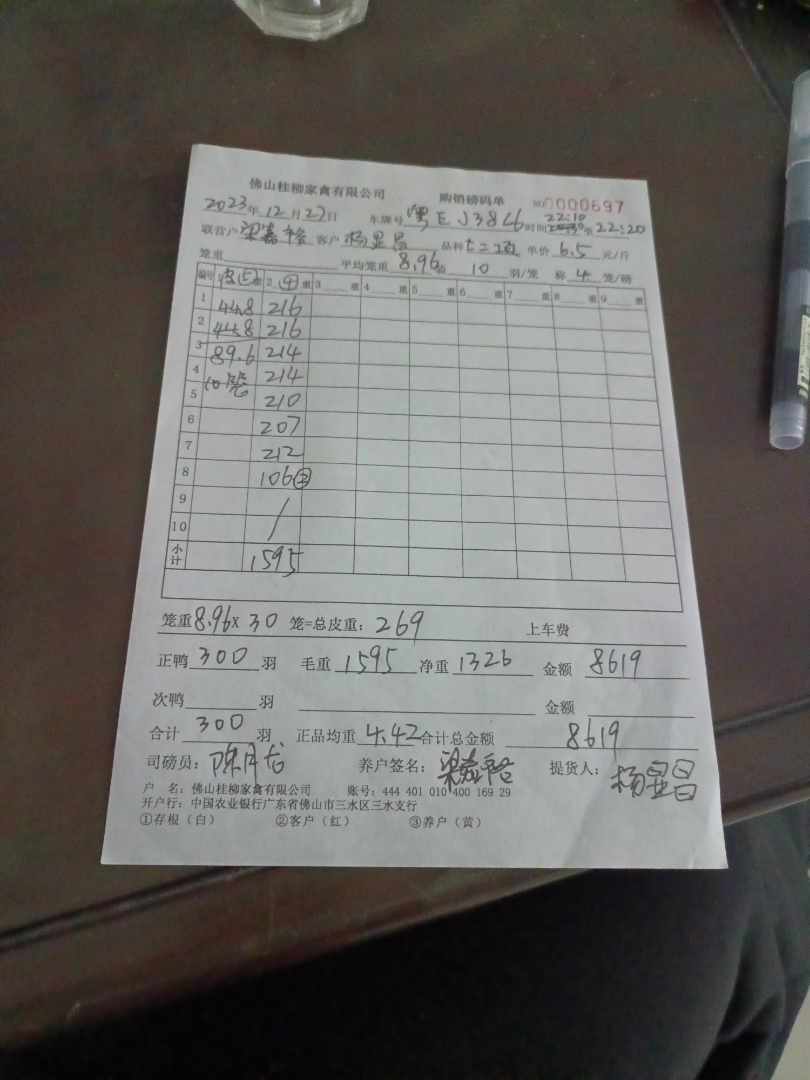 佛山桂柳家禽有限公司 购销磅码单 NO 0000697
2023年12月27日 车牌号 粤E J38L6 时间 22:10 至 22:20
联营户 梁嘉裕 客户 杨显昌 品种 单价 6.5 元/斤
笼重 平均笼重 8.96 装 10 羽/笼 称 4 笼/磅
编号 皮⑤ 重 2 ④ 重 3 重 4 重 5 重 6 重 7 重 8 重 9 重
1 44.8 216
2 44.8 216
3 89.6 214
4 10笼 214
5 210
6 207
7 212
8 106②
9 /
10
小计 1595
笼重 8.96 X 30 笼=总皮重: 269 上车费
正鸭 300 羽 毛重 1595 净重 1326 金额 8619
次鸭 羽 金额
合计 300 羽 正品均重 4.42 合计总金额 8619
司磅员: 陈月龙 养户签名: 梁嘉裕 提货人: 杨显昌
户 名: 佛山桂柳家禽有限公司 账号: 444 401 010 400 169 29
开户行: 中国农业银行广东省佛山市三水区三水支行
①存根(白) ②客户(红) ③养户(黄)